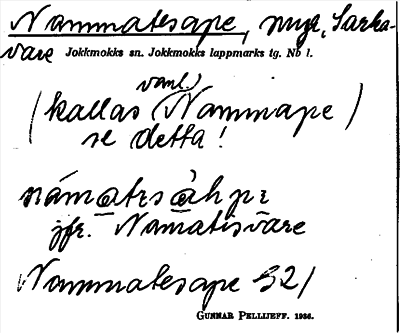 Nammatesape, myr, Sarka-
vare Jokkmokks sn. Jokkmokks lappmarks tg. Nb l.
vanl.
(kallas Nammape)
se detta!
námatɛsàhpɛ
jfr. Namatisvare
Nammatesape 321
GUNNAR PELLIJEFF. 1936.